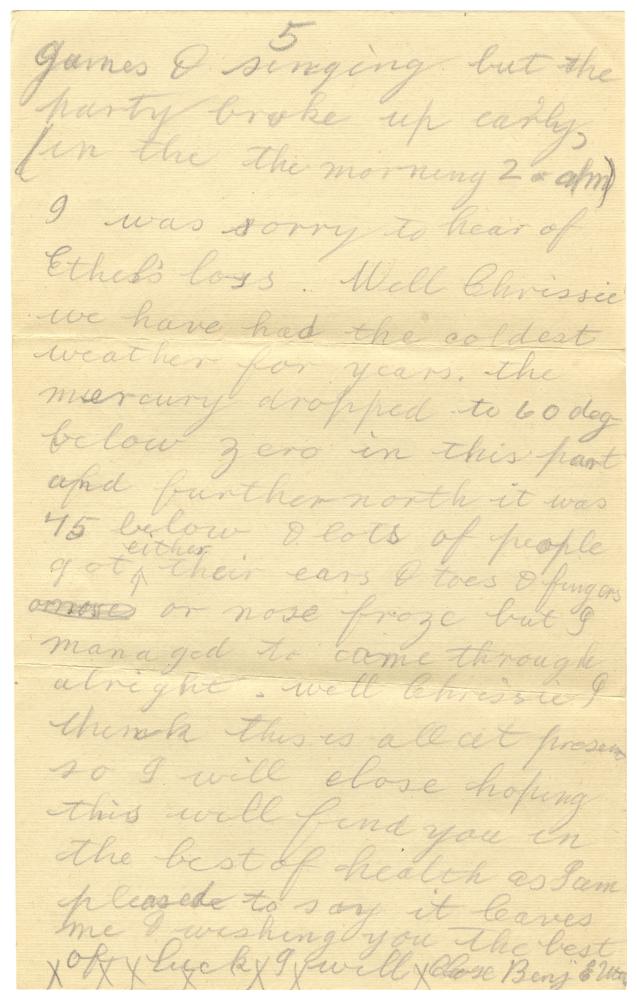 5
games & singing but the
party broke up early,
(in the the morning 2 am)
I was sorry to hear of
Ethel's loss. Well Chrissie
we have had the coldest
weather for years. the
mercury dropped to 60 deg
below zero in this part
and further north it was
75 below & lots of people
either
got their ears & toes & fingers
or nose froze but I
managed to come through
alright. well Chrissie I
think this is all at presen
so I will close hoping
this will find you in
the best of health as I am
pleased to say it leaves
me & wishing you the best
of luck I will close Benj E
x x x x x x